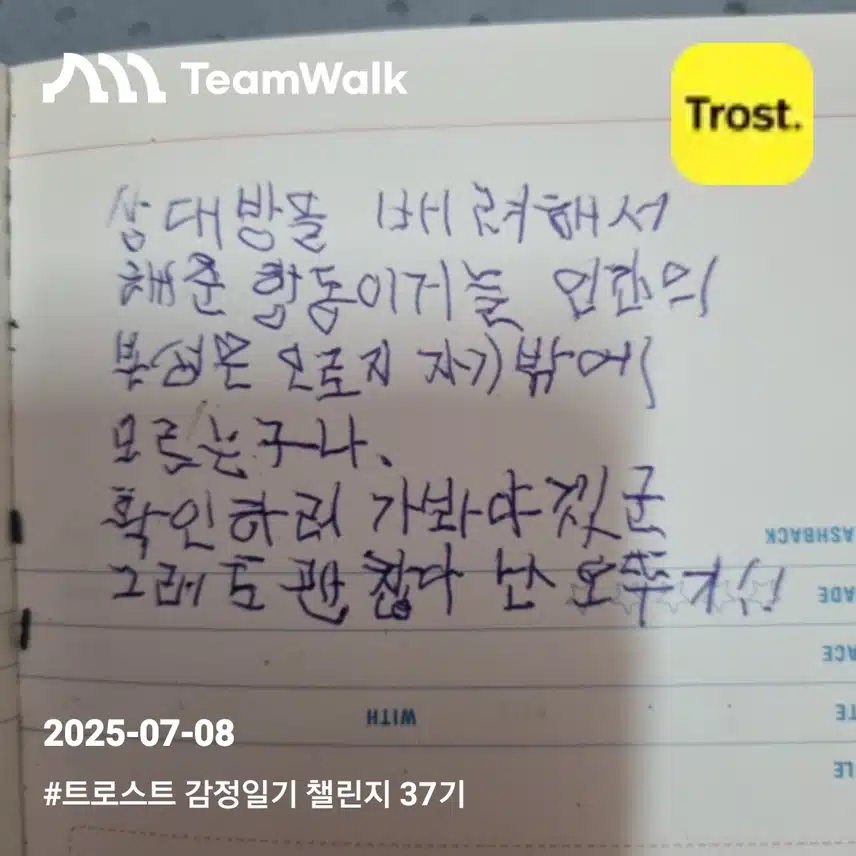 TeamWalk
Trost.
상대방을 배려해서
해준 합동이거늘 인간의
본성은 오로지 자기밖에
모르는구나.
확인하러 가봐야겠군
그래도 괜찮다 난 오뚜기!!
ASHBACK
ADE
ACE
WITH
2025-07-08
#트로스트 감정일기 챌린지 37기